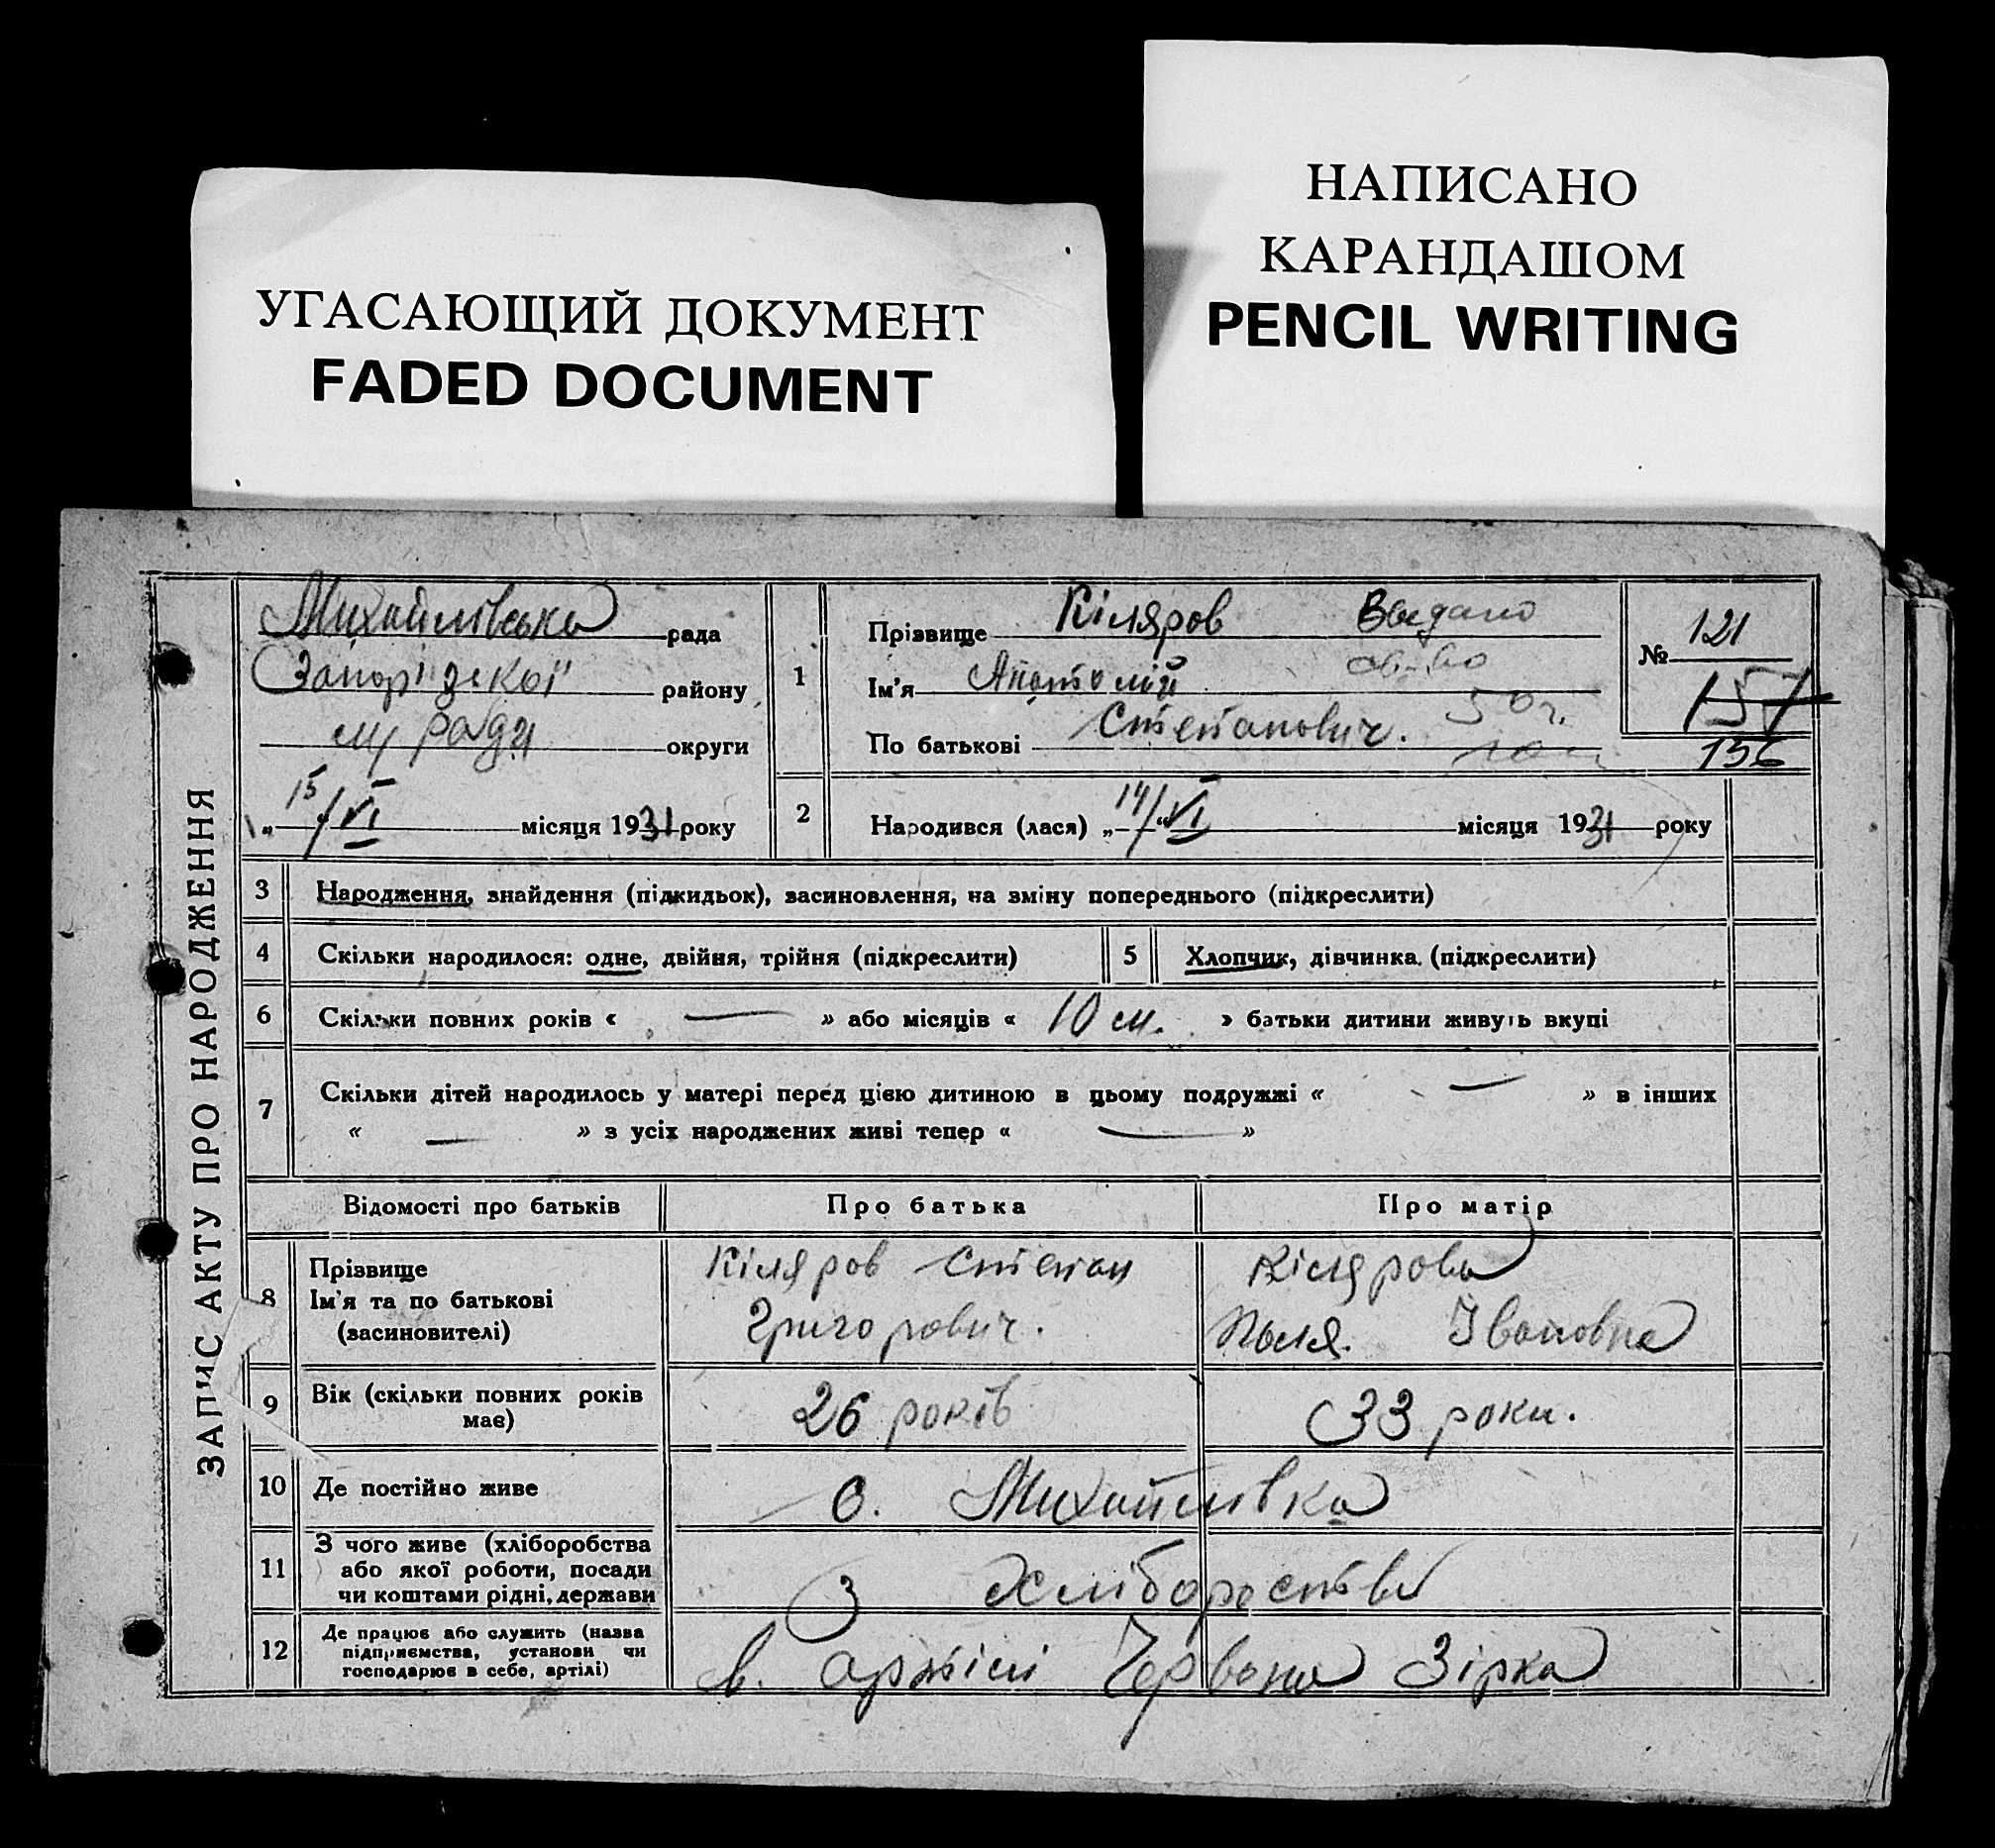 НАПИСАНО
КАРАНДАШОМ
PENCIL WRITING
УГАСАЮЩИЙ ДОКУМЕНТ
FADED DOCUMENT
ЗАПИС АКТУ ПРО НАРОДЖЕННЯ
Михайлівська рада
Запорізької району
м/ ради округи
„15/VI“ місяця 1931 року
1
Прізвище Кіляров
Ім'я Анатолій
По батькові Степанович.
Видано
св-во
50 г.
№ 121
157
156
2 Народився (лася) „14/VI“ місяця 1931 року
3 Народження, знайдення (підкидьок), засиновлення, на зміну попереднього (підкреслити)
4 Скільки народилося: одне, двійня, трійня (підкреслити)
5 Хлопчик, дівчинка. (підкреслити)
6 Скільки повних років « — » або місяців « 10 м. » батьки дитини живуть вкупі
7 Скільки дітей народилось у матері перед цією дитиною в цьому подружжі « — » в інших
« — » з усіх народжених живі тепер « — »
Відомості про батьків Про батька Про матір
8
Прізвище
Ім'я та по батькові
(засиновителі)
Кіляров Степан
Григорович.
Кілярова
Поля. Івановна
9 Вік (скільки повних років
має)
26 років 33 роки.
10 Де постійно живе с. Михайлівка
11
З чого живе (хліборобства
або якої роботи, посади
чи коштами рідні, держави
З хлібороства
12
Де працює або служить (назва
підприємства, установи чи
господарює в себе, артілі)
в. артілі Червона Зірка